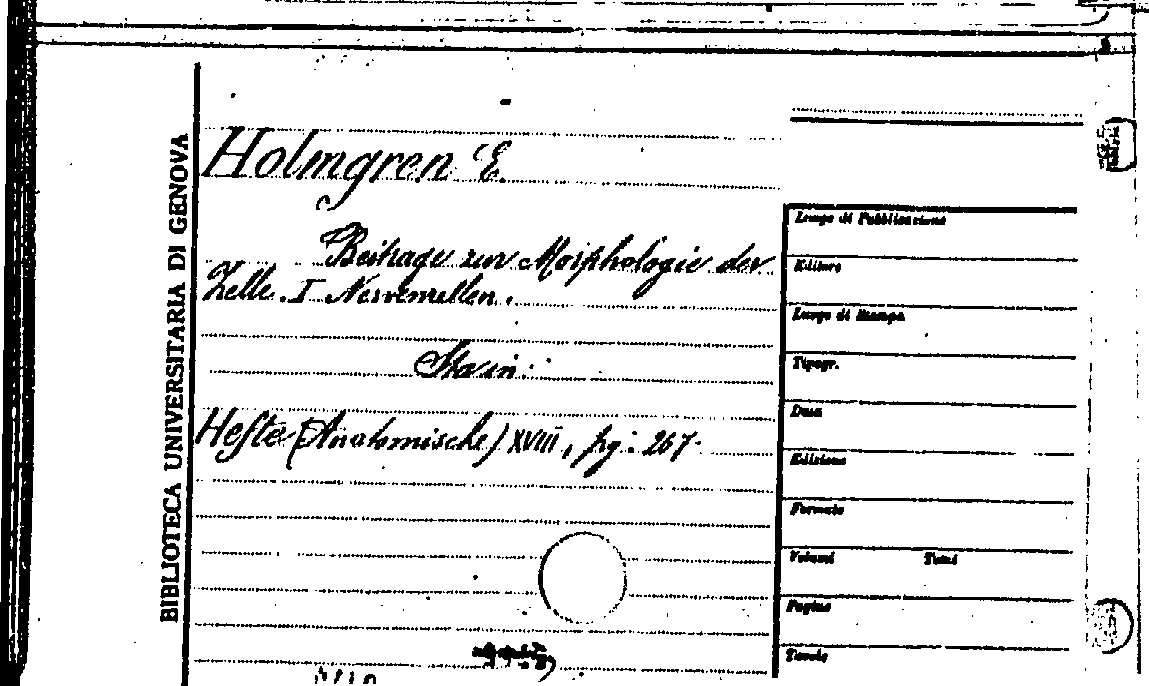 BIBLIOTECA UNIVERSITARIA DI GENOVA
Holmgren E.
Beitrage zur Morphologie der
Zelle. I Nervenzellen.
Sta in:
Hefte (Anatomische) XVIII, pg: 267.
Luogo di Pubblicazione
Editore
Luogo di Stampa
Tipogr.
Data
Edizione
Formato
Volumi Tomi
Pagine
Tavole